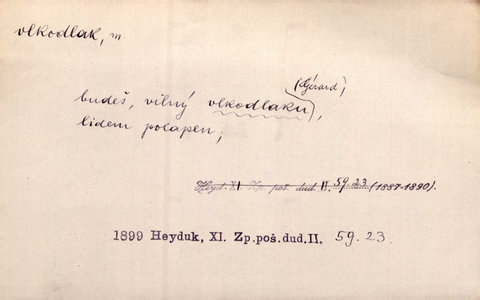 vlkodlak, m
(Gérard)
budeš, vilný vlkodlaku,
lidem polapen;
Heyd. XI. Zp. poš. dud. II. 59. 23 (1887-1890).
1899 Heyduk, XI. Zp.poš.dud.II. 59. 23.